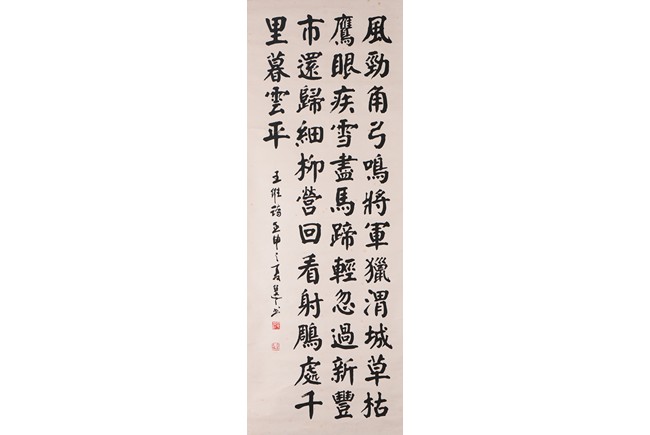 風勁角弓鳴將軍獵渭城草枯
鷹眼疾雪盡馬蹄輕忽過新豐
市還歸細柳營回看射鵰處千
里暮雲平
王維詩申之夏